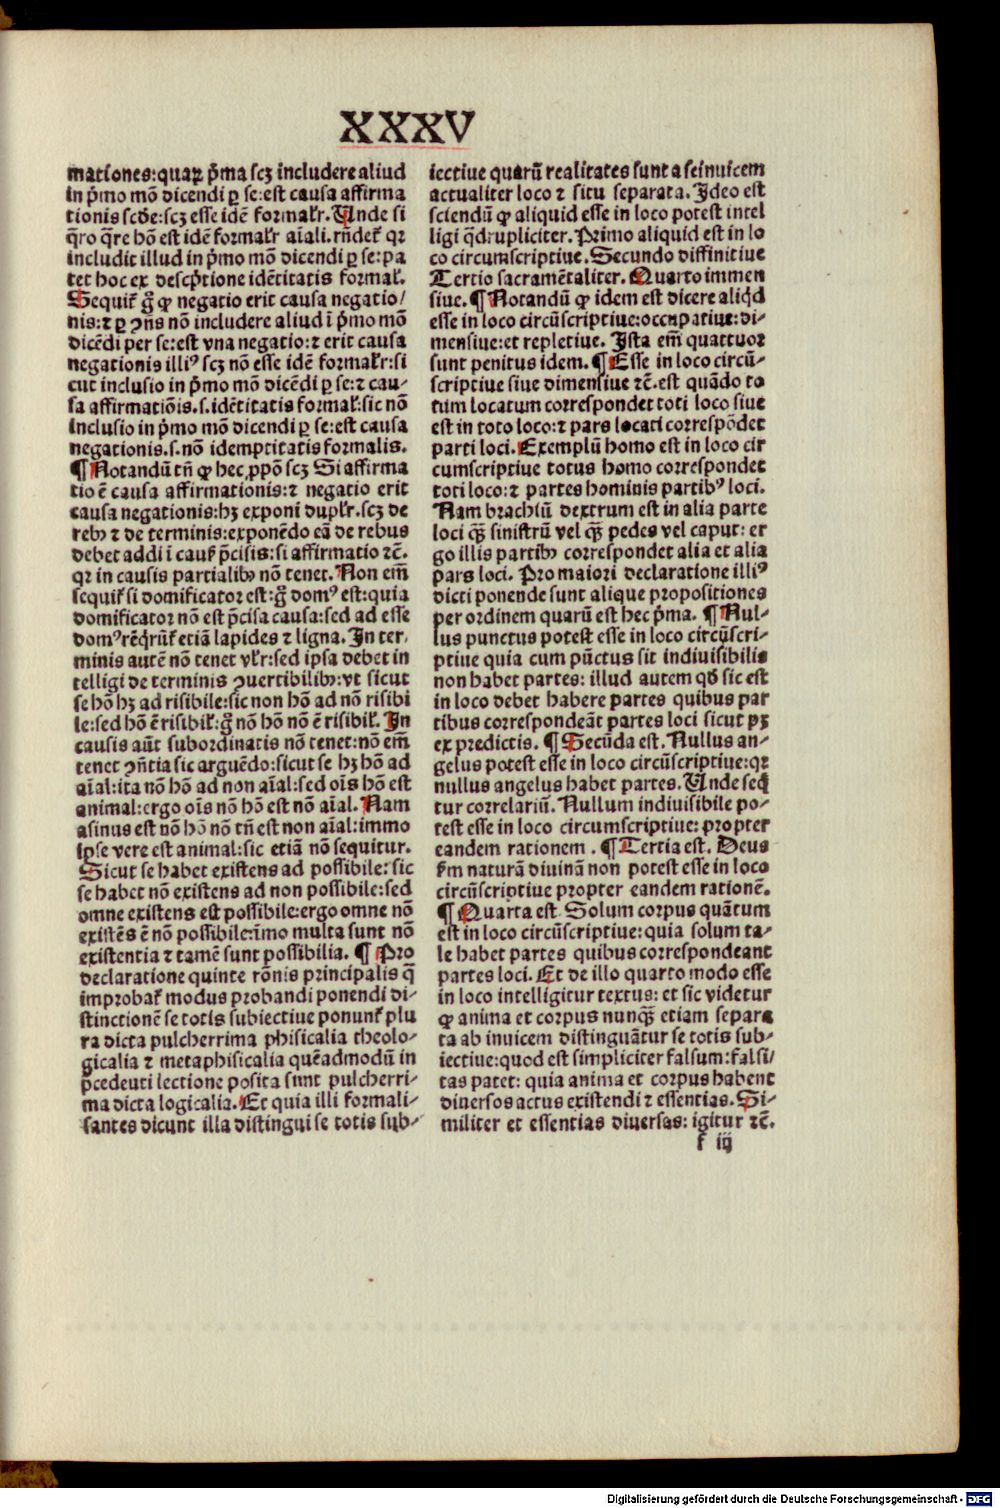 XXXV
mationes:quaꝝ p̄ma scꝫ includere aliud
in p̄mo mō dicendi ꝑ se:est causa affirma
tionis scd̄e:scꝫ esse idē formalr̄. Unde si
q̄ro q̄re hō est idē formalr̄ aīali.rn̄det̄ qꝛ
includit illud in p̄mo mō dicendi ꝑ se:pa
tet hoc ex descp̄tione idētitatis formal̄.
Sequit̄ ḡ ꝙ negatio erit causa negatio/
nis:⁊ ꝑ ꝯn̄s nō includere aliud ī p̄mo mō
dicēdi per se:est vna negatio:⁊ erit causa
negationis illiꝰ scꝫ nō esse idē formalr̄:si
cut inclusio in p̄mo mō dicēdi ꝑ se:⁊ cau-
sa affirmatiōis.s.idētitatis formal̄:sic nō
inclusio in p̄mo mō dicendi ꝑ se:est causa
negationis.s.nō idemptitatis formalis.
¶ Notandū tn̄ ꝙ hec ꝓpō scꝫ Si affirma
tio ē causa affirmationis:⁊ negatio erit
causa negationis:hꝫ exponi duplr̄.scꝫ de
rebꝰ ⁊ de terminis:exponēdo eā de rebus
debet addi ī caus̄ p̄cisis:si affirmatio ⁊c̄.
qꝛ in causis partialibꝫ nō tenet. Non em̄
sequit̄ si domificator est:ḡ domꝰ est:quia
domificator nō est p̄cisa causa:sed ad esse
domꝰ req̄rūt̄ etiā lapides ⁊ ligna. In ter-
minis autē nō tenet vlr̄:sed ipsa debet in
telligi de terminis ꝯuertibilibꝫ:vt sicut
se hō hꝫ ad risibile:sic non hō ad nō risibi
le:sed hō ē risibil̄:ḡ nō hō nō ē risibil̄. In
causis aūt subordinatis nō tenet:nō em̄
tenet ꝯn̄tia sic arguēdo:sicut se hꝫ hō ad
aīal:ita nō hō ad non aīal:sed oīs hō est
animal:ergo oīs nō hō est nō aīal. Nam
asinus est nō hō nō tn̄ est non aīal:immo
ipse vere est animal:sic etiā nō sequitur.
Sicut se habet existens ad possibile: sic
se habet nō existens ad non possibile:sed
omne existens est possibile:ergo omne nō
existēs ē nō possibile:īmo multa sunt nō
existentia ⁊ tamē sunt possibilia. ¶ Pro
declaratione quinte rōnis principalis q̄
improbat̄ modus probandi ponendi di-
stinctionē se totis subiectiue ponunt̄ plu
ra dicta pulcherrima phisicalia theolo-
gicalia ⁊ metaphisicalia quēadmodū in
p̄cedenti lectione posita sunt pulcherri-
ma dicta logicalia. Et quia illi formali-
santes dicunt illa distingui se totis sub-
iectiue quarū realitates sunt a seinuicem
actualiter loco ⁊ situ separata. Ideo est
sciendū ꝙ aliquid esse in loco potest intel
ligi q̄drupliciter. Primo aliquid est in lo
co circumscriptiue. Secundo diffinitiue
Tertio sacramētaliter. Quarto immen
siue. ¶ Notandū ꝙ idem est dicere aliq̄d
esse in loco circūscriptiue:occupatiue:di-
mensiue:et repletiue. Ista em̄ quattuor
sunt penitus idem. ¶ Esse in loco circū-
scriptiue siue dimensiue ⁊c̄.est quādo to
tum locatum correspondet toti loco siue
est in toto loco:⁊ pars locati correspōdet
parti loci. Exemplū homo est in loco cir
cumscriptiue totus homo correspondet
toti loco:⁊ partes hominis partibꝰ loci.
Nam brachiū dextrum est in alia parte
loci qꝙ̄ sinistrū vel qꝙ̄ pedes vel caput: er
go illis partibꝫ correspondet alia et alia
pars loci. Pro maiori declaratione illiꝰ
dicti ponende sunt alique propositiones
per ordinem quarū est hec p̄ma. ¶ Nul-
lus punctus potest esse in loco circūscri-
ptiue quia cum pūctus sit indiuisibilis
non habet partes: illud autem qd̄ sic est
in loco debet habere partes quibus par
tibus correspondeāt partes loci sicut pꝫ
ex predictis. ¶ Secūda est. Nullus an-
gelus potest esse in loco circūscriptiue:qꝛ
nullus angelus habet partes. Unde seq̄
tur correlariū. Nullum indiuisibile po-
test esse in loco circumscriptiue: propter
eandem rationem . ¶ Tertia est. Deus
fm̄ naturā diuinā non potest esse in loco
circūscriptiue propter eandem rationē.
¶ Quarta est Solum corpus quātum
est in loco circūscriptiue: quia solum ta-
le habet partes quibus correspondeant
partes loci. Et de illo quarto modo esse
in loco intelligitur textus: et sic videtur
ꝙ anima et corpus nunqꝙ̄ etiam separa
ta ab inuicem distinguātur se totis sub-
iectiue:quod est simpliciter falsum:falsi/
tas patet: quia anima et corpus habent
diuersos actus existendi ⁊ essentias. Si-
militer et essentias diuersas: igitur ⁊c̄.
f iij
Digitalisierung gefördert durch die Deutsche Forschungsgemeinschaft - DFG